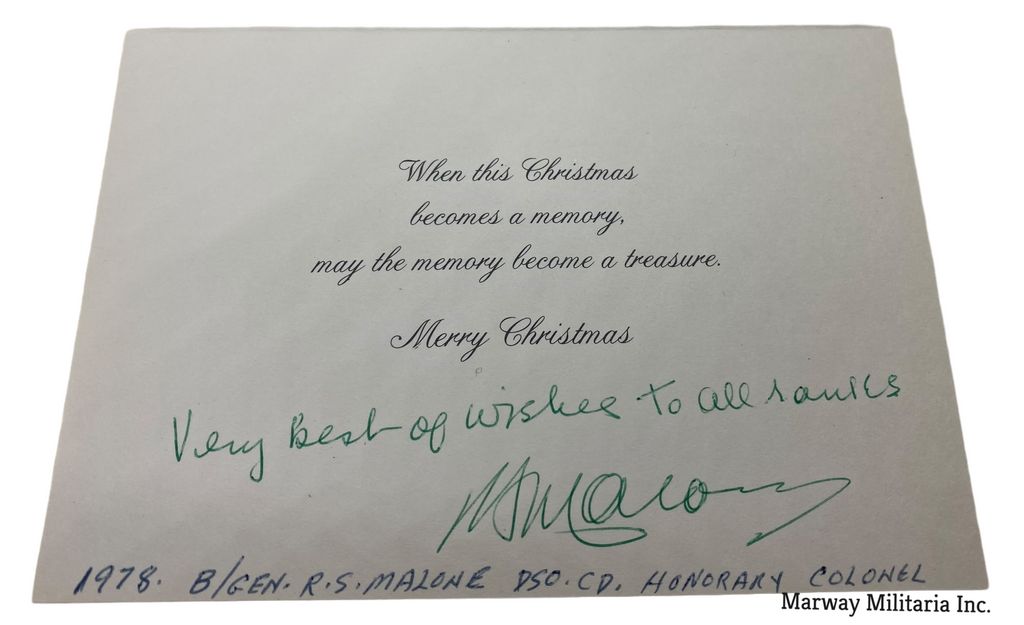 When this Christmas
becomes a memory,
may the memory become a treasure.
Merry Christmas
Very Best of wishes to all ranks
RSMalone
1978. B/GEN. R.S. MALONE DSO. CD. HONORARY COLONEL
Marway Militaria Inc.